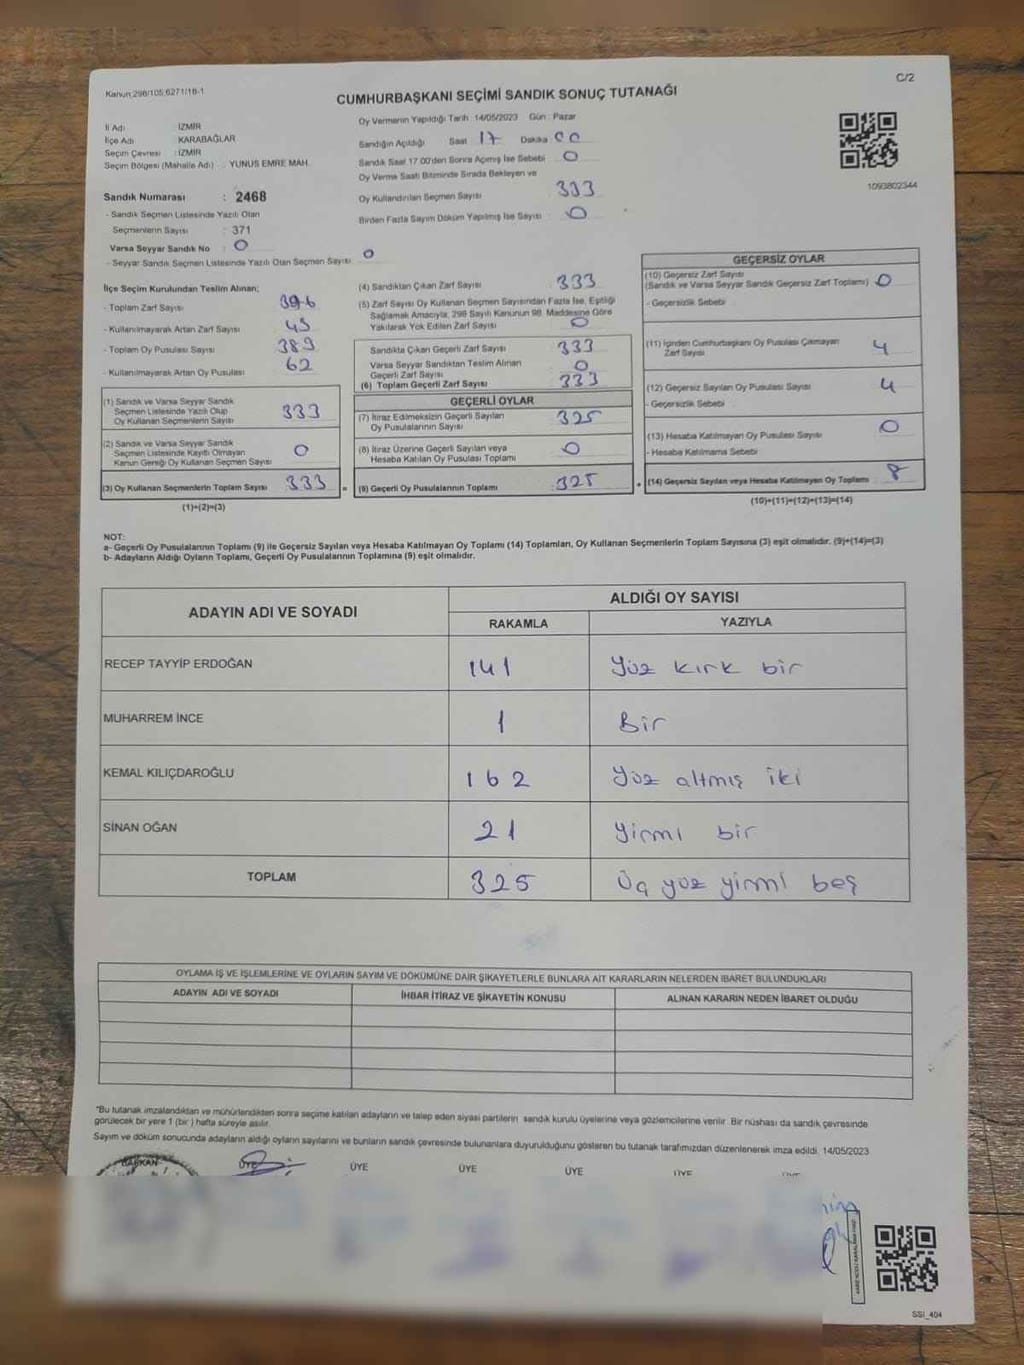 C/2
Kanun:298/105,6271/18-1
CUMHURBAŞKANI SEÇİMİ SANDIK SONUÇ TUTANAĞI
İl Adı : İZMİR
İlçe Adı : KARABAĞLAR
Seçim Çevresi : İZMİR
Seçim Bölgesi (Mahalle Adı) : YUNUS EMRE MAH.
Sandık Numarası : 2468
- Sandık Seçmen Listesinde Yazılı Olan
Seçmenlerin Sayısı : 371
Varsa Seyyar Sandık No : 0
- Seyyar Sandık Seçmen Listesinde Yazılı Olan Seçmen Sayısı : 0
Oy Vermenin Yapıldığı Tarih : 14/05/2023 Gün : Pazar
Sandığın Açıldığı Saat 17 Dakika 00
Sandık Saat 17.00'den Sonra Açılmış İse Sebebi 0
Oy Verme Saati Bitiminde Sırada Bekleyen ve
Oy Kullandırılan Seçmen Sayısı 333
Birden Fazla Sayım Döküm Yapılmış İse Sayısı : 0
1093802344
İlçe Seçim Kurulundan Teslim Alınan;
- Toplam Zarf Sayısı : 396
- Kullanılmayarak Artan Zarf Sayısı : 45
- Toplam Oy Pusulası Sayısı : 389
- Kullanılmayarak Artan Oy Pusulası : 62
(1) Sandık ve Varsa Seyyar Sandık
Seçmen Listesinde Yazılı Olup
Oy Kullanan Seçmenlerin Sayısı : 333
(2) Sandık ve Varsa Seyyar Sandık
Seçmen Listesinde Kayıtlı Olmayan
Kanun Gereği Oy Kullanan Seçmen Sayısı : 0
(3) Oy Kullanan Seçmenlerin Toplam Sayısı : 333 =
(1)+(2)=(3)
(4) Sandıktan Çıkan Zarf Sayısı : 333
(5) Zarf Sayısı Oy Kullanan Seçmen Sayısından Fazla İse, Eşitliği
Sağlamak Amacıyla; 298 Sayılı Kanunun 98. Maddesine Göre
Yakılarak Yok Edilen Zarf Sayısı : 0
Sandıkta Çıkan Geçerli Zarf Sayısı : 333
Varsa Seyyar Sandıktan Teslim Alınan
Geçerli Zarf Sayısı : 0
(6) Toplam Geçerli Zarf Sayısı : 333
GEÇERLİ OYLAR
(7) İtiraz Edilmeksizin Geçerli Sayılan
Oy Pusulalarının Sayısı : 325
(8) İtiraz Üzerine Geçerli Sayılan veya
Hesaba Katılan Oy Pusulası Toplamı : 0
(9) Geçerli Oy Pusulalarının Toplamı : 325 +
GEÇERSİZ OYLAR
(10) Geçersiz Zarf Sayısı
(Sandık ve Varsa Seyyar Sandık Geçersiz Zarf Toplamı) : 0
- Geçersizlik Sebebi :
(11) İçinden Cumhurbaşkanı Oy Pusulası Çıkmayan
Zarf Sayısı : 4
(12) Geçersiz Sayılan Oy Pusulası Sayısı : 4
- Geçersizlik Sebebi :
(13) Hesaba Katılmayan Oy Pusulası Sayısı : 0
- Hesaba Katılmama Sebebi :
(14) Geçersiz Sayılan veya Hesaba Katılmayan Oy Toplamı : 8
(10)+(11)+(12)+(13)=(14)
NOT:
a- Geçerli Oy Pusulalarının Toplamı (9) ile Geçersiz Sayılan veya Hesaba Katılmayan Oy Toplamı (14) Toplamları, Oy Kullanan Seçmenlerin Toplam Sayısına (3) eşit olmalıdır. (9)+(14)=(3)
b- Adayların Aldığı Oyların Toplamı, Geçerli Oy Pusulalarının Toplamına (9) eşit olmalıdır.
ADAYIN ADI VE SOYADI
ALDIĞI OY SAYISI
RAKAMLA YAZIYLA
RECEP TAYYİP ERDOĞAN 141 Yüz kırk bir
MUHARREM İNCE 1 Bir
KEMAL KILIÇDAROĞLU 162 Yüz altmış iki
SİNAN OĞAN 21 Yirmi bir
TOPLAM 325 Üç yüz yirmi beş
OYLAMA İŞ VE İŞLEMLERİNE VE OYLARIN SAYIM VE DÖKÜMÜNE DAİR ŞİKAYETLERLE BUNLARA AİT KARARLARIN NELERDEN İBARET BULUNDUKLARI
ADAYIN ADI VE SOYADI İHBAR İTİRAZ VE ŞİKAYETİN KONUSU ALINAN KARARIN NEDEN İBARET OLDUĞU
*Bu tutanak imzalandıktan ve mühürlendikten sonra seçime katılan adayların ve talep eden siyasi partilerin sandık kurulu üyelerine veya gözlemcilerine verilir. Bir nüshası da sandık çevresinde
görülecek bir yere 1 (bir) hafta süreyle asılır.
Sayım ve döküm sonucunda adayların aldığı oyların sayılarını ve bunların sandık çevresinde bulunanlara duyurulduğunu gösteren bu tutanak tarafımızdan düzenlenerek imza edildi. 14/05/2023
BAŞKAN ÜYE ÜYE ÜYE ÜYE ÜYE
SSI_404